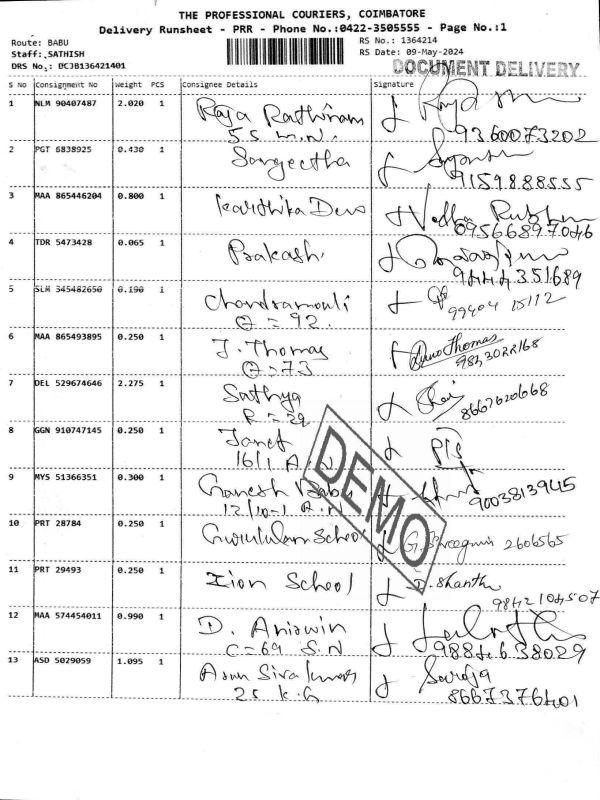 THE PROFESSIONAL COURIERS, COIMBATORE
Delivery Runsheet - PRR - Phone No.:0422-3505555 - Page No.:1
Route: BABU
Staff: SATHISH
DRS No.: DCJB136421401
RS No.: 1364214
RS Date: 09-May-2024
DOCUMENT DELIVERY
S No Consignment No Weight PCS Consignee Details Signature
1 NLM 90407487 2.020 1 Raja Rathinam
55 M.N. 9360073202
2 PGT 6838925 0.430 1 Sangeetha
9159888555
3 MAA 865446204 0.800 1 Karthika Devi
09566897046
4 TDR 5473428 0.065 1 Prakash
9444351689
5 SLM 345482650 0.190 1 Chandramouli
Q = 92. 99404 15112
6 MAA 865493895 0.250 1 J. Thomas Thomas
Q = 73 9843022168
7 DEL 529674646 2.275 1 Sathya
R = 29 8667620668
8 GGN 910747145 0.250 1 Janet
16/1 A.N
DEMO
9 MYS 51366351 0.300 1 Ganesh Babu
12/10-1 A.N 9003813945
10 PRT 28784 0.250 1 Gurukulam School G. 2606565
11 PRT 29493 0.250 1 Zion School D. Shanthi
9842104507
12 MAA 574454011 0.990 1 D. Aniswin
C = 69 S.N 9884638029
13 ASD 5029059 1.095 1 Arun Siva Kumar Saroja
25 K.G 8667376401